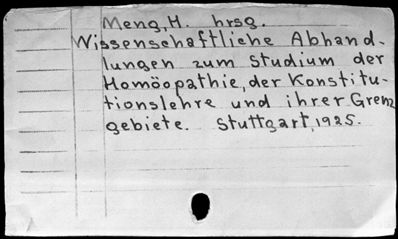 Meng, H. hrsg.
Wissenschaftliche Abhand-
lungen zum Studium der
Homöopathie, der Konstitu-
tionslehre und ihrer Grenz
gebiete. Stuttgart, 1925.